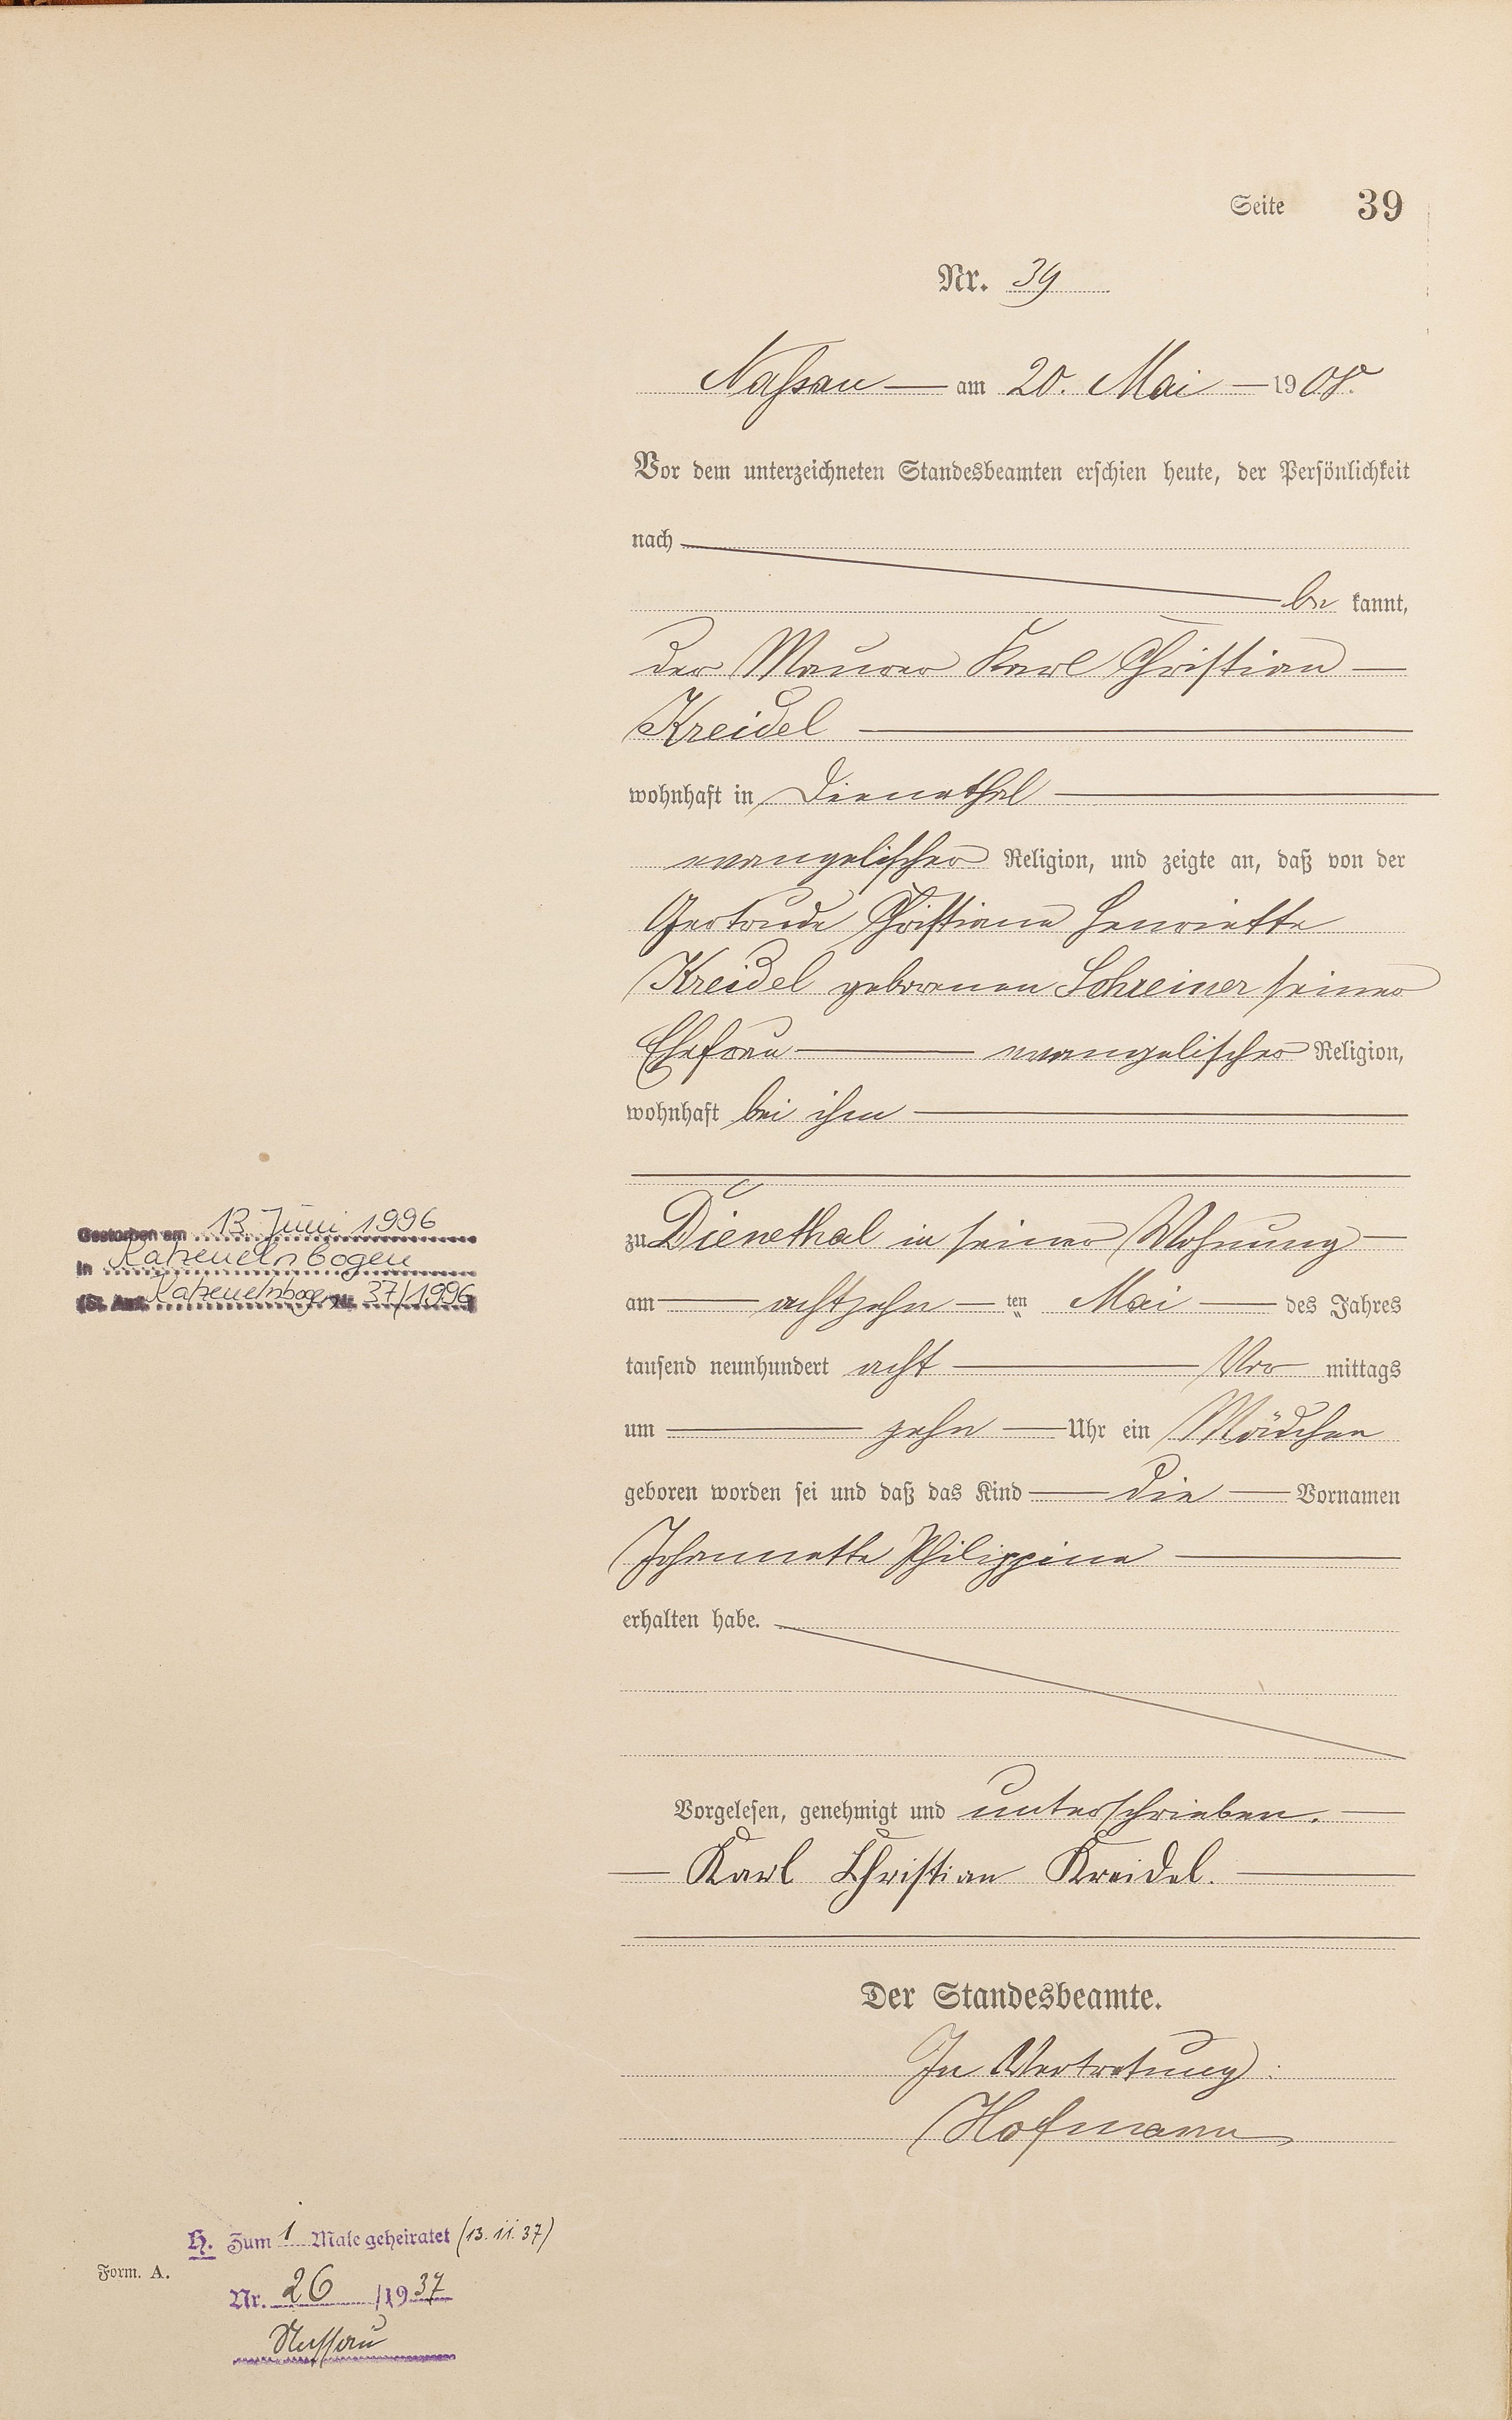 Seite 39
Nr. 39
Nassau — am 20. Mai — 1908.
Vor dem unterzeichneten Standesbeamten erschien heute, der Persönlichkeit
nach
be kannt,
der Maurer Karl Christian —
Kreidel —
wohnhaft in Dienethal —
evangelischer Religion, und zeigte an, daß von der
Gertrude Christiane Henriette
Kreidel geborenen Schreiner seiner
Ehefrau — evangelischer Religion,
wohnhaft bei ihm —
zu Dienethal in seiner Wohnung —
am — achtzehn — ten Mai — des Jahres
tausend neunhundert acht — Vor mittags
um — zehn — Uhr ein Mädchen
geboren worden sei und daß das Kind — die — Vornamen
Johannette Philippine —
erhalten habe.
Vorgelesen, genehmigt und unterschrieben. —
— Karl Christian Kreidel. —
Der Standesbeamte.
In Vertretung:
Hofmann
Gestorben am 13. Juni 1996
in Katzenelnbogen
(St. Amt Katzenelnbogen Nr. 37/1996)
H. Zum 1 Male geheiratet (13.11.37)
Form. A.
Nr. 26 /1937
Nassau